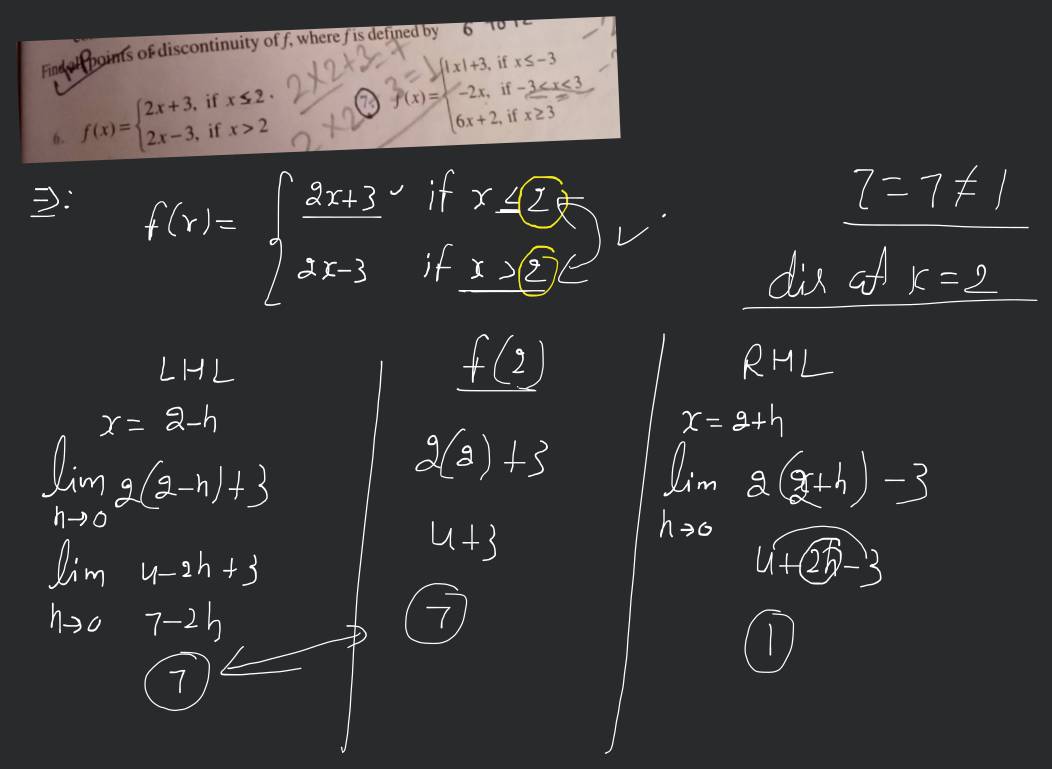 Find all points of discontinuity of f, where f is defined by
6. f(x) = { 2x+3, if x ≤ 2
2x−3, if x > 2
7. f(x) = { |x|+3, if x ≤ −3
−2x, if −3 < x < 3
6x+2, if x ≥ 3
2×2+3=7
⇒: f(x) = { 2x+3 if x ≤ 2
2x−3 if x > 2
7 = 7 ≠ 1
dis at x = 2
LHL
x = 2−h
lim h→0 2(2−h)+3
lim h→0 4−2h+3
7−2h
7
f(2)
2(2)+3
4+3
7
RHL
x = 2+h
lim h→0 2(2+h)−3
4+2h−3
1